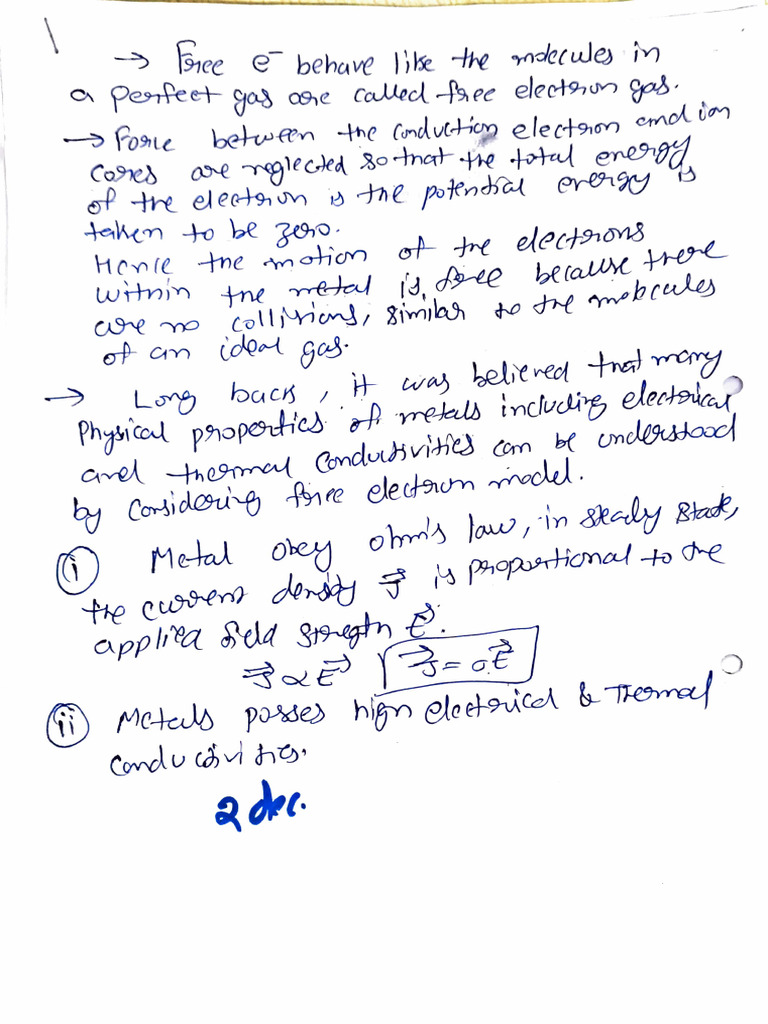 → Free e⁻ behave like the molecules in
a perfect gas are called free electron gas.
→ Force between the conduction electron and ion
cores are neglected so that the total energy
of the electron is the potential energy is
taken to be zero.
Hence the motion of the electrons
within the metal is free because there
are no collisions, similar to the molecules
of an ideal gas.
→ Long back, it was believed that many
Physical properties of metals including electrical
and thermal conductivities can be understood
by considering free electron model.
(i) Metal obey ohm's law, in steady state,
the current density J⃗ is proportional to the
applied field strength E⃗.
J⃗ ∝ E⃗ J⃗ = σE⃗
(ii) Metals posses high electrical & Thermal
conductivities.
2 dec.